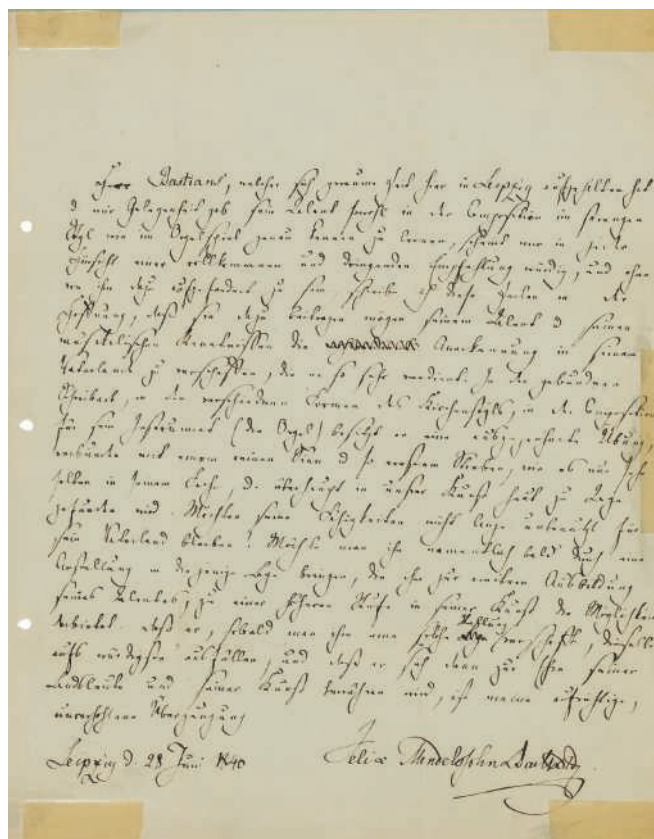 Herr Bastians, welcher sich geraume Zeit hier in Leipzig aufgehalten hat
u mir Gelegenheit gab sein Talent sowohl in der Composition im strengen
Styl wie im Orgelspiel genau kennen zu lernen, scheint mir in jeder
Hinsicht einer vollkommenen und dringenden Empfehlung würdig, und ohne
von ihm dazu aufgefordert zu sein, schreibe ich diese Zeilen in der
Hoffnung, daß sie dazu beitragen mögen seinem Talent u seinen
musikalischen Kenntnissen die Anerkennung in seinem
Vaterlande zu verschaffen, die er so sehr verdient. In der gebundenen
Schreibart, in den verschiedenen Formen des Kirchenstyls, in der Composition
für sein Instrument (der Orgel) besitzt er eine ausgezeichnete Übung,
verbunden mit einem reinen Sinn u so wahrem Streben, wie es nur sehr
selten in seinem Fache, u. überhaupt in unsrer Kunst heut zu Tage
gefunden wird. Möchten seine Fähigkeiten nicht lange unbenutzt für
sein Vaterland bleiben! Möchte man ihn namentlich bald durch eine
Anstellung in diejenige Lage bringen, die ihm zur weitern Ausbildung
seines Talentes, zu einer höheren Stufe in seiner Kunst die Möglichkeit
darbietet. daß er, sobald man ihm eine solche Stellung verschafft, dieselbe
aufs würdigste ausfüllen, und daß er sich dann zur Ehre seiner
Landsleute und seiner Kunst bewähren wird, ist meine aufrichtige,
unverhohlene Überzeugung
Leipzig d. 28 Juni 1840 Felix Mendelssohn Bartholdy.